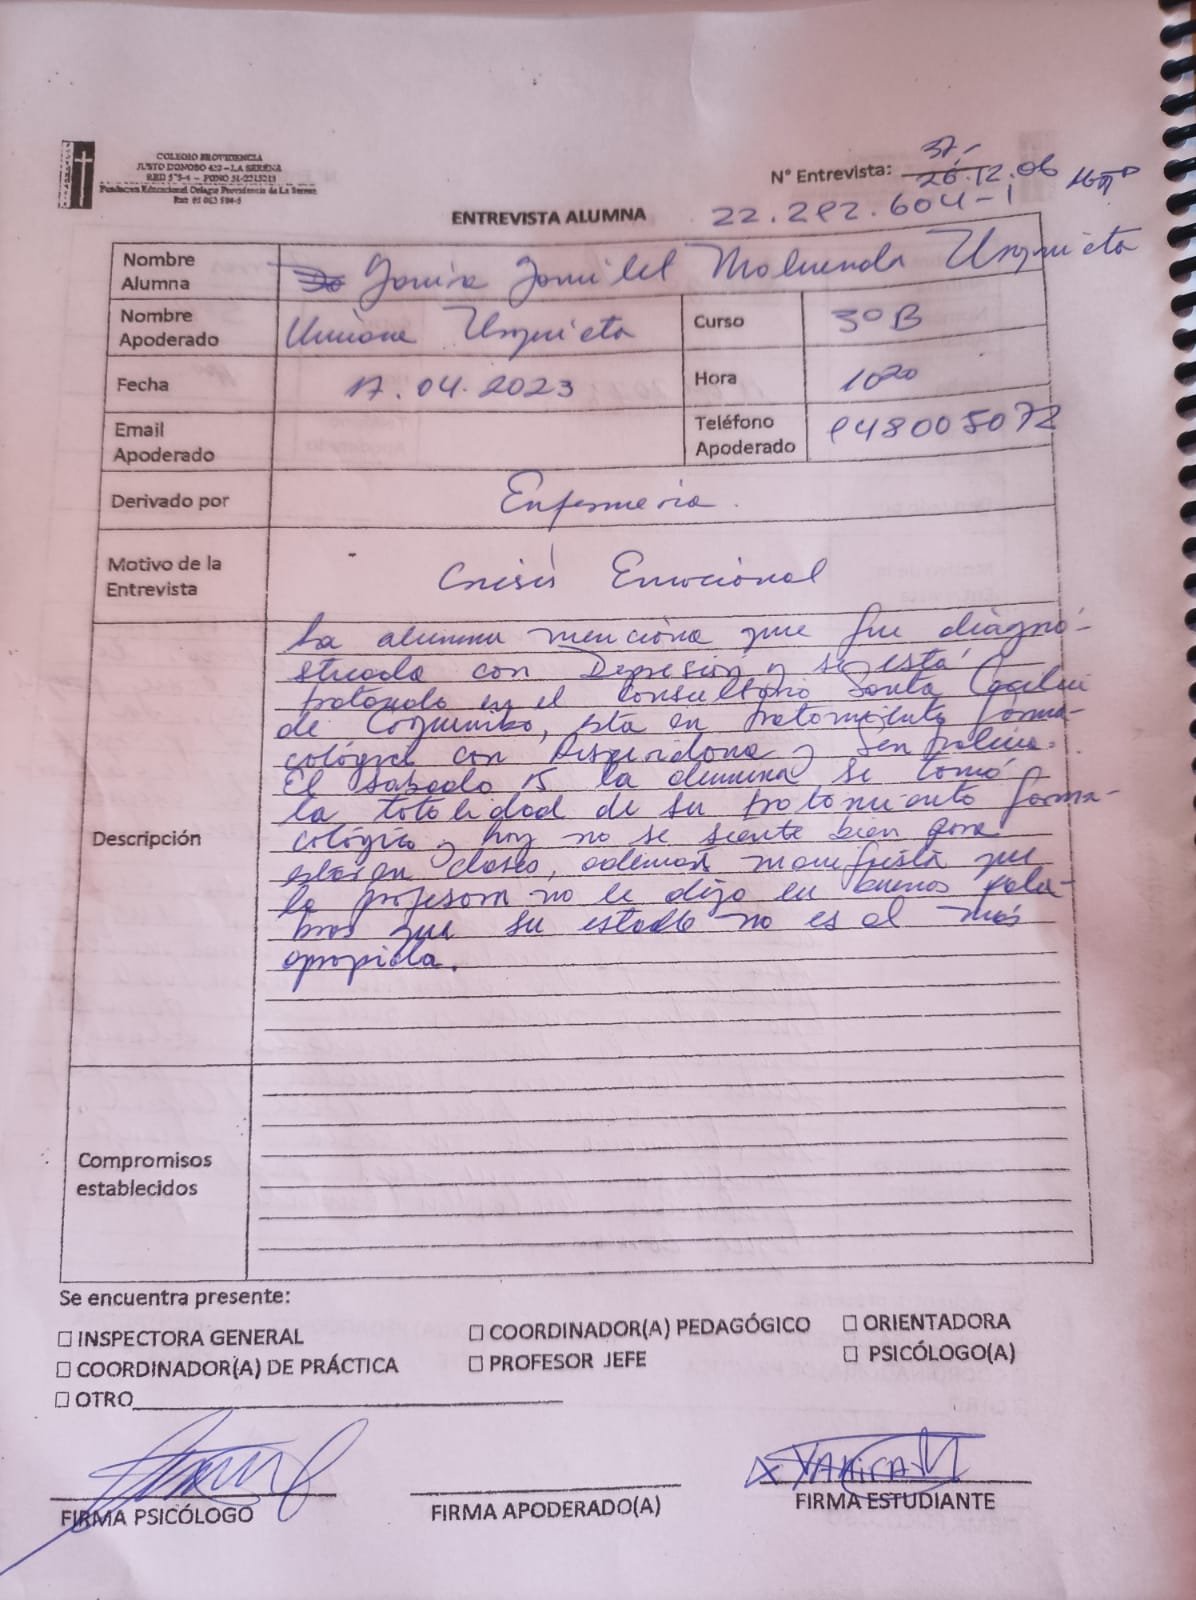 COLEGIO PROVIDENCIA
JUSTO DONOSO 420 - LA SERENA
RBD 575-4 - FONO 51-2215213
Fundación Educacional Colegio Providencia de La Serena
N° Entrevista: 37.-
26.12.06
22.292.604-1
ENTREVISTA ALUMNA
Nombre Alumna Yanira Yamilet Maluenda Urquieta
Nombre Apoderado Urquieta Curso 3º B
Fecha 17.04.2023 Hora 10 20
Email Apoderado Teléfono Apoderado 948005072
Derivado por Enfermeria.
Motivo de la Entrevista Crisis Emocional
Descripción
La alumna menciona que fue diagnó-
sticada con Depresión y se está
tratando en el consultorio Santa Cecilia
de Coquimbo, esta en tratamiento farma-
cológico con Risperidona y Sertralina.
El sabado 15 la alumna se tomó
la totalidad de su tratamiento farma-
cológico y hoy no se siente bien para
estar en clases, además manifiesta que
la profesora no le dijo en buenas pala-
bras que su estado no es el más
apropiada.
Compromisos establecidos
Se encuentra presente:
☐ INSPECTORA GENERAL ☐ COORDINADOR(A) PEDAGÓGICO ☐ ORIENTADORA
☐ COORDINADOR(A) DE PRÁCTICA ☐ PROFESOR JEFE ☐ PSICÓLOGO(A)
☐ OTRO
YANIRA M
FIRMA PSICÓLOGO FIRMA APODERADO(A) FIRMA ESTUDIANTE